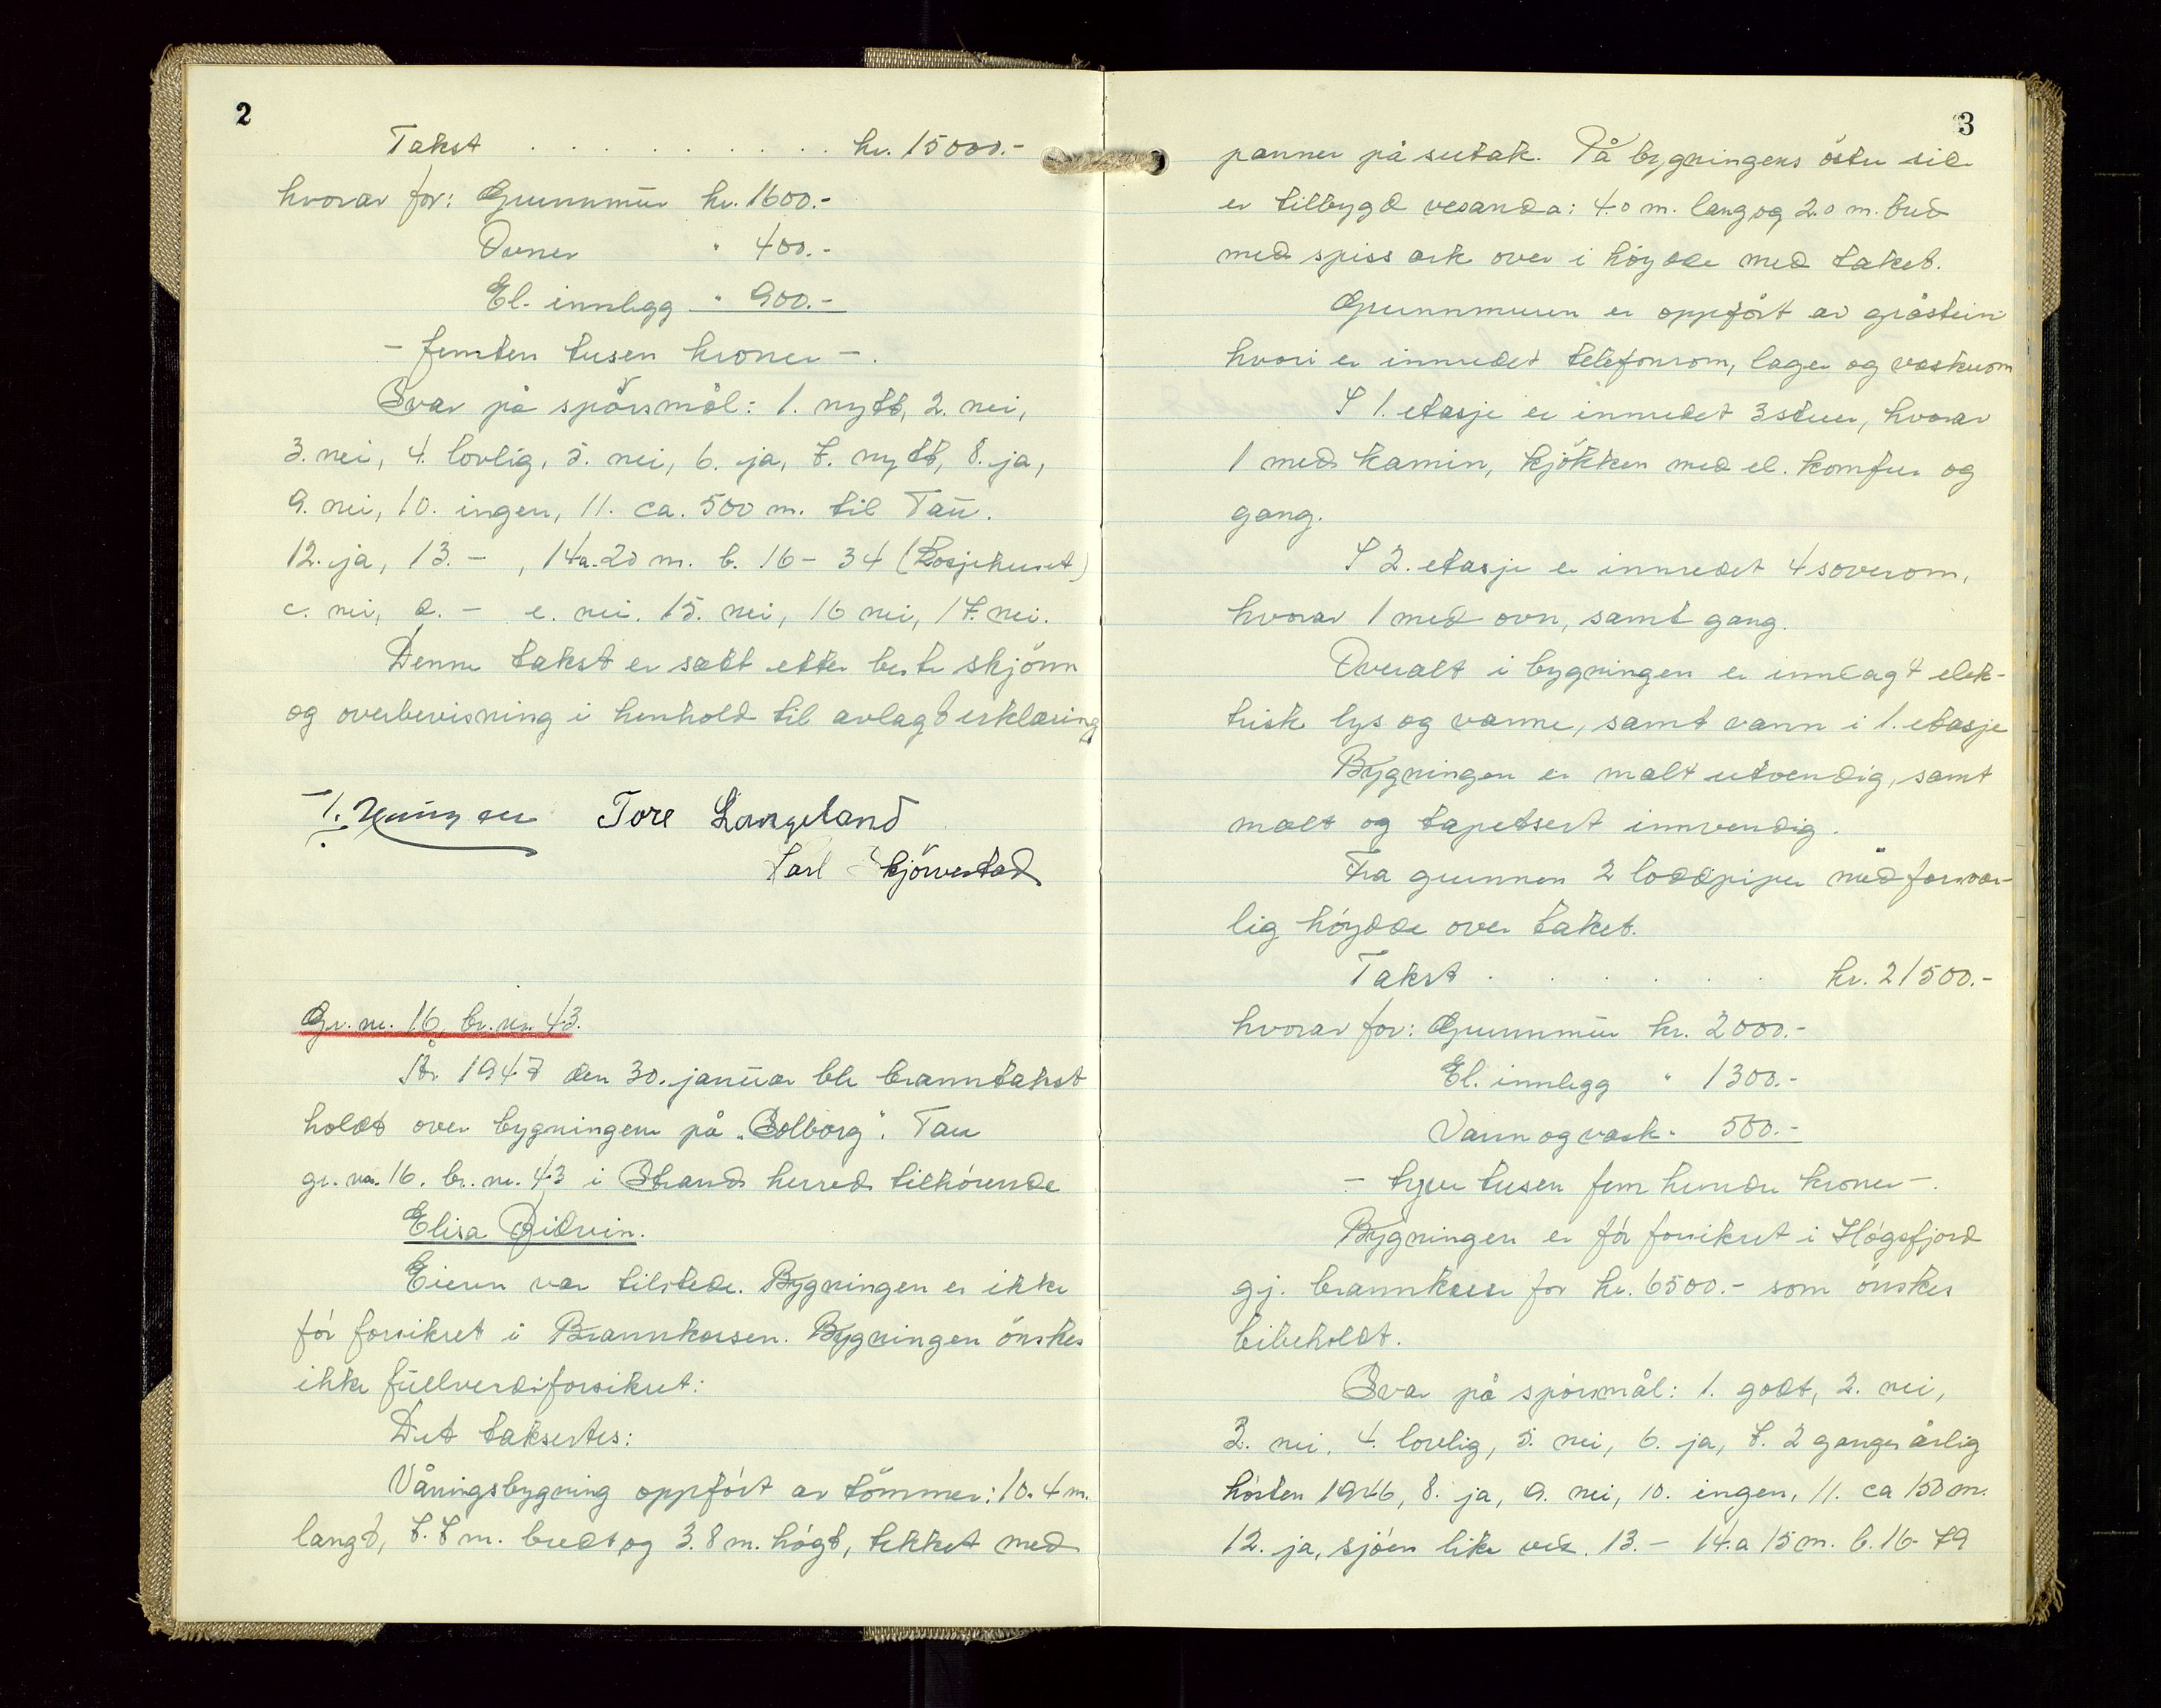 2
Takst . . . . . . . . . . . kr. 15000.-
hvorav for: Grunnmur kr. 1600.-
Ovner " 400.-
El. innlegg " 900.-
- femten tusen kroner -.
Svar på spörsmål: 1. nytt, 2. nei,
3. nei, 4. lovlig, 5. nei, 6. ja, 7. nytt, 8. ja,
9. nei, 10. ingen, 11. ca. 500 m. til Tau.
12. ja, 13. - , 14a. 20 m. b. 16 - 34 (Losjehuset)
c. nei, d. - e. nei. 15. nei, 16 nei, 17. nei.
Denne takst er satt etter beste skjönn
og overbevisning i henhold til avlagt erklæring
Tore Langeland
Karl Skjörvestad
Gr. nr. 16, br. nr. 43.
År 1947 den 30. januar ble branntakst
holdt over bygningene på "Solborg". Tau
gr. nr. 16. br. nr. 43 i Strand herred tilhörende
Elisa Gidvin.
Eieren var tilstede. Bygningen er ikke
för forsikret i Brannkassen. Bygningen önskes
ikke fullverdiforsikret:
Det taksertes:
Våningsbygning oppfört av tömmer: 10.4 m.
langt, 7.7 m. bredt og 3.8 m. högt, tekket med
3
panner på sutak. På bygningens östre side
er tilbygd veranda: 4.0 m. lang og 2.0 m. bred
med spiss ark over i höyde med taket.
Grunnmuren er oppfört av gråstein
hvori er innredet telefonrom, lager og vaskerom
I 1. etasje er innredet 3 stuer, hvorav
1 med kamin, kjökken med el. komfur og
gang.
I 2. etasje er innredet 4 soverom,
hvorav 1 med ovn, samt gang.
Overalt i bygningen er innlagt elek-
trisk lys og varme, samt vann i 1. etasje
Bygningen er malt utvendig, samt
malt og tapetsert innvendig.
Fra grunnen 2 loddpiper med forsvar-
lig höyde over taket.
Takst . . . . . . kr. 21500.-
hvorav for: Grunnmur kr. 2000.-
El. innlegg " 1300.-
Vann og vask " 500.-
- tjue tusen fem hundre kroner -.
Bygningen er för forsikret i Högsfjord
gj. brannkasse for kr. 6500.- som önskes
bibeholdt.
Svar på spörsmål: 1. godt, 2. nei,
3. nei, 4. lovlig, 5. nei, 6. ja, 7. 2 ganger årlig
hösten 1946, 8. ja, 9. nei, 10. ingen, 11. ca 150 m.
12. ja, sjöen like ved. 13. - 14.a 15 m. b. 16-79